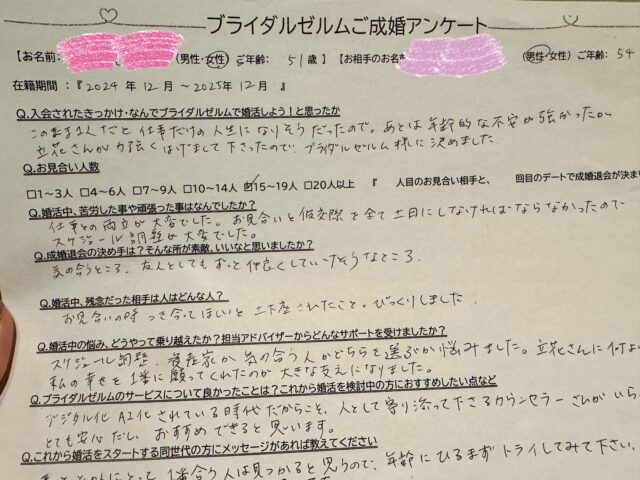 ブライダルゼルムご成婚アンケート
【お名前: （男性・女性）ご年齢: 51 歳】【お相手のお名 （男性・女性）ご年齢: 54
在籍期間:『2024 年 12 月 ～ 2025年 12 月 』
Q.入会されたきっかけ・なんでブライダルゼルムで婚活しよう！と思ったか
このまま1人だと仕事だけの人生になりそうだったので。あとは年齢的な不安が強かったが
立花さんが力強くはげまして下さったので、ブライダルゼルム様に決めました。
Q.お見合い人数
□1～3人 □4～6人 □7～9人 □10～14人 ☑15～19人 □20人以上 『 人目のお見合い相手と、 回目のデートで成婚退会が決ま
Q.婚活中、苦労した事や頑張った事はなんでしたか？
仕事との両立が大変でした。お見合いと仮交際を全て土日にしなければならなかったので
スケジュール調整が大変でした。
Q.成婚退会の決め手は？そんな所が素敵、いいなと思いましたか？
気の合うところ、友人としてもずっと仲良くしていけそうなところ。
Q.婚活中、残念だった相手は人はどんな人？
お見合いの時つき合ってほしいと土下座されたこと。びっくりしました。
Q.婚活中の悩み、どうやって乗り越えたか？担当アドバイザーからどんなサポートを受けましたか？
スケジュール調整、資産家か気の合う人かどちらを選ぶか悩みました。立花さんに
私の幸せを1番に願ってくれたのが大きな支えになりました。
Q.ブライダルゼルムのサービスについて良かったことは？これから婚活を検討中の方におすすめしたい点など
デジタル化 AI化されている時代だからこそ、人として寄り添って下さるカウンセラーさんがいら
とても安心だし、おすすめできると思います。
Q.これから婚活をスタートする同世代の方にメッセージがあれば教えてください
1番合う人は見つかると思うので、年齢にひるまずトライしてみて下さい。